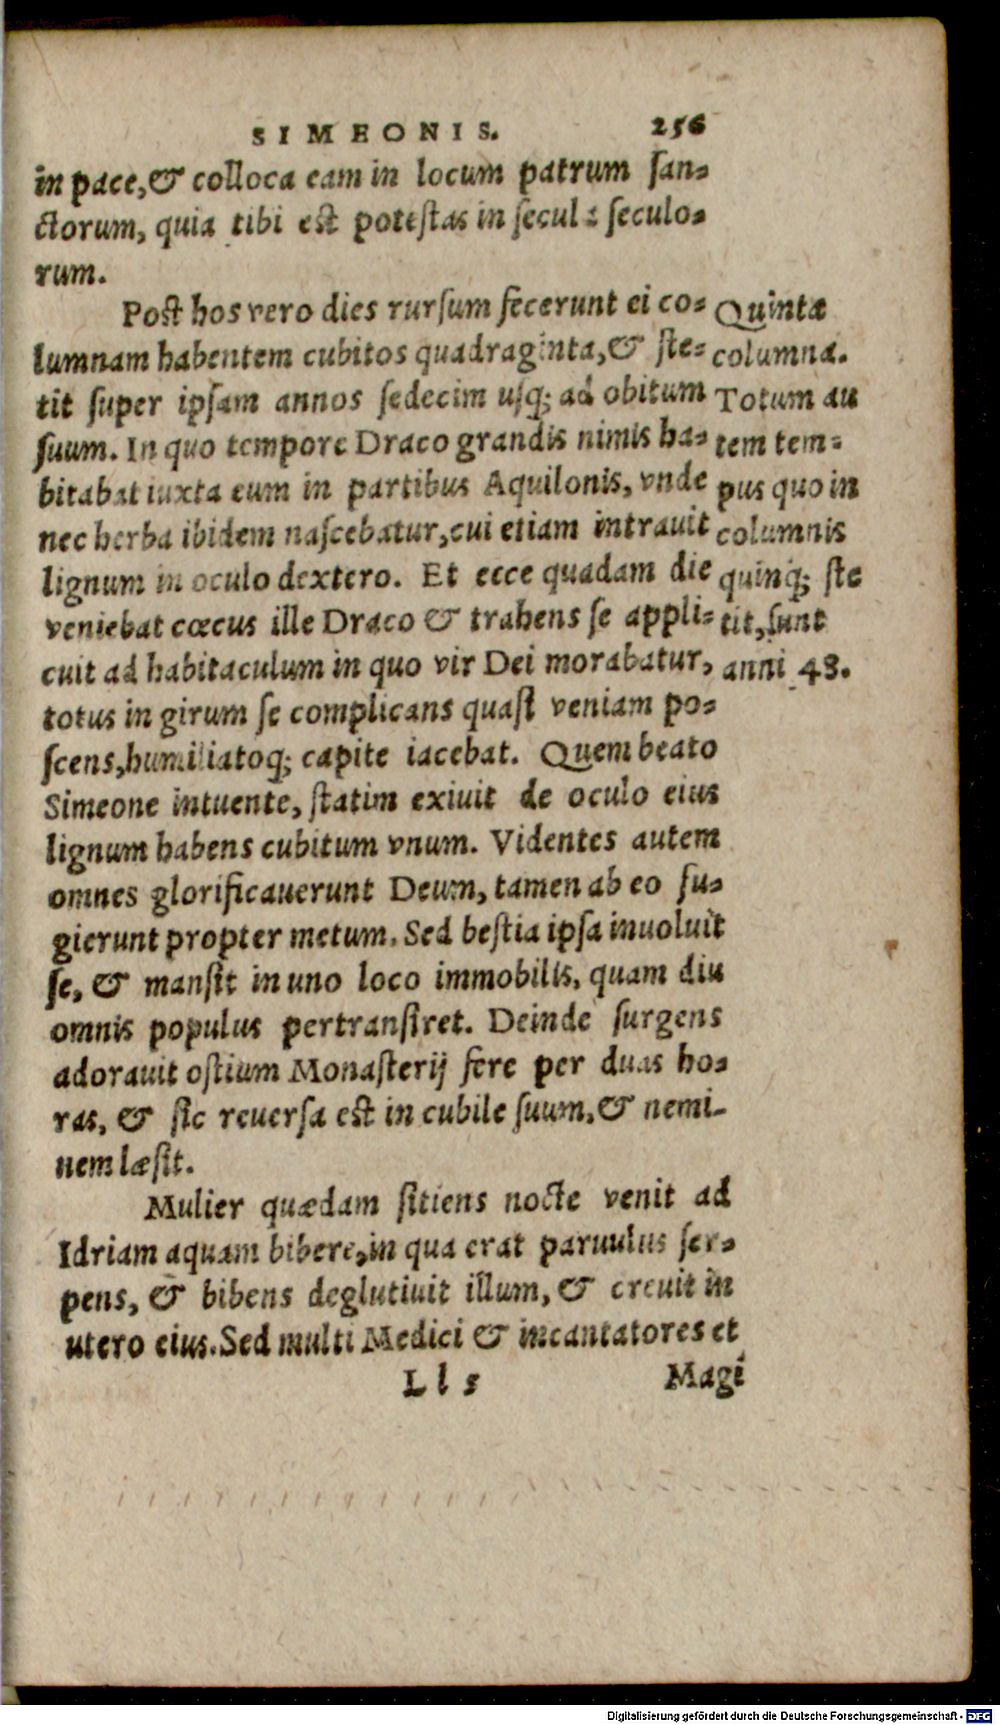 SIMEONIS. 256
in pace, & colloca eam in locum patrum san-
ctorum, quia tibi est potestas in secula seculo-
rum.
Post hos vero dies rursum fecerunt ei co-
lumnam habentem cubitos quadraginta, & ste-
tit super ipsam annos sedecim usq; ad obitum
suum. In quo tempore Draco grandis nimis ha-
bitabat iuxta eum in partibus Aquilonis, vnde
nec herba ibidem nascebatur, cui etiam intrauit
lignum in oculo dextero. Et ecce quadam die
veniebat cœcus ille Draco & trahens se appli-
cuit ad habitaculum in quo vir Dei morabatur,
totus in girum se complicans quasi veniam po-
scens, humiliatoq; capite iacebat. Quem beato
Simeone intuente, statim exiuit de oculo eius
lignum habens cubitum vnum. Videntes autem
omnes glorificauerunt Deum, tamen ab eo fu-
gierunt propter metum. Sed bestia ipsa inuoluit
se, & mansit in uno loco immobilis, quam diu
omnis populus pertransiret. Deinde surgens
adorauit ostium Monasterij fere per duas ho-
ras, & sic reuersa est in cubile suum, & nemi-
nem læsit.
Mulier quædam sitiens nocte venit ad
Idriam aquam bibere, in qua erat paruulus ser-
pens, & bibens deglutiuit illum, & creuit in
utero eius. Sed multi Medici & incantatores et
Ll 5 Magi
Quinta
columna.
Totum au
tem tem-
pus quo in
columnis
quinq; ste
tit, sunt
anni 48.
Digitalisierung gefördert durch die Deutsche Forschungsgemeinschaft - DFG